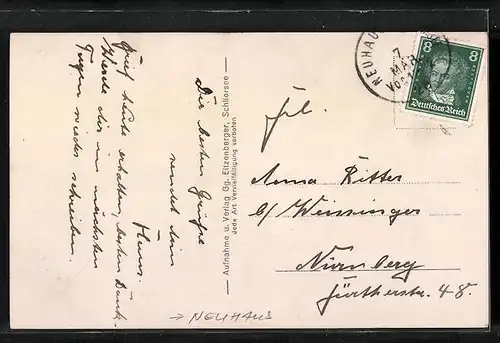 Die besten Grüße
sendet dein
Hans.
Brief heute erhalten, besten Dank.
Werde dir in nächsten
Tagen wieder schreiben.
Aufnahme u. Verlag Gg. Eitzenberger, Schliersee
Jede Art Vervielfältigung verboten
NEUHAU
7
MÄR
8 8
Deutsches Reich
Frl.
Anna Ritter
b/ Weissinger
Nürnberg
Fürtherstr. 48.
→ NEUHAUS